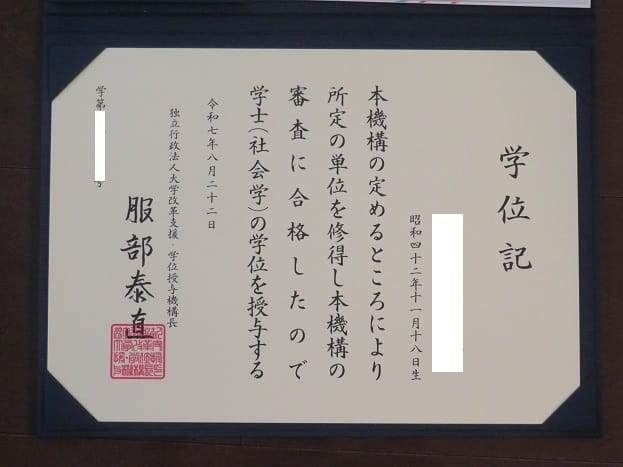 学位記
昭和四十二年十一月十八日生
本機構の定めるところにより
所定の単位を修得し本機構の
審査に合格したので
学士(社会学)の学位を授与する
令和七年八月二十二日
独立行政法人大学改革支援・学位授与機構長
服部泰直
学第
号